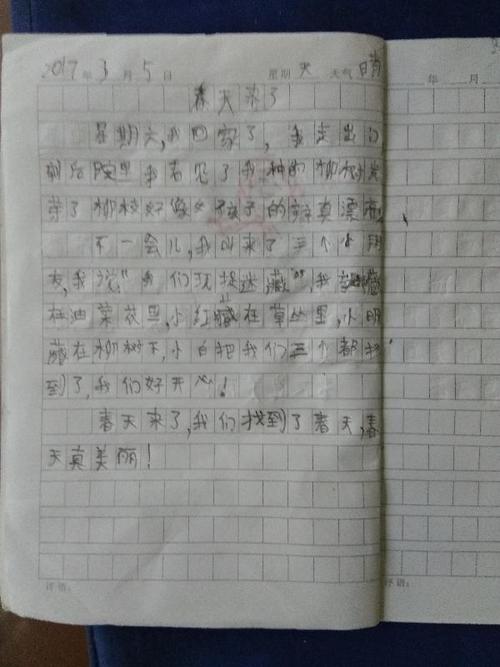 2017年3月5日 星期天 天气晴 年 月
春天来了
星期六,我回家了,我走出门
到后院里我看见了我种的柳树发
芽了柳枝好像女孩子的辫真漂亮。
不一会儿,我叫来了三个小朋
友,我说:“我们玩捉迷藏”。我躲藏
在油菜花里,小红藏在草丛里,小明
藏在柳树下,小白把我们三个都找
到了,我们好开心!
春天来了,我们找到了春天,春
天真美丽!
评语: 评语: